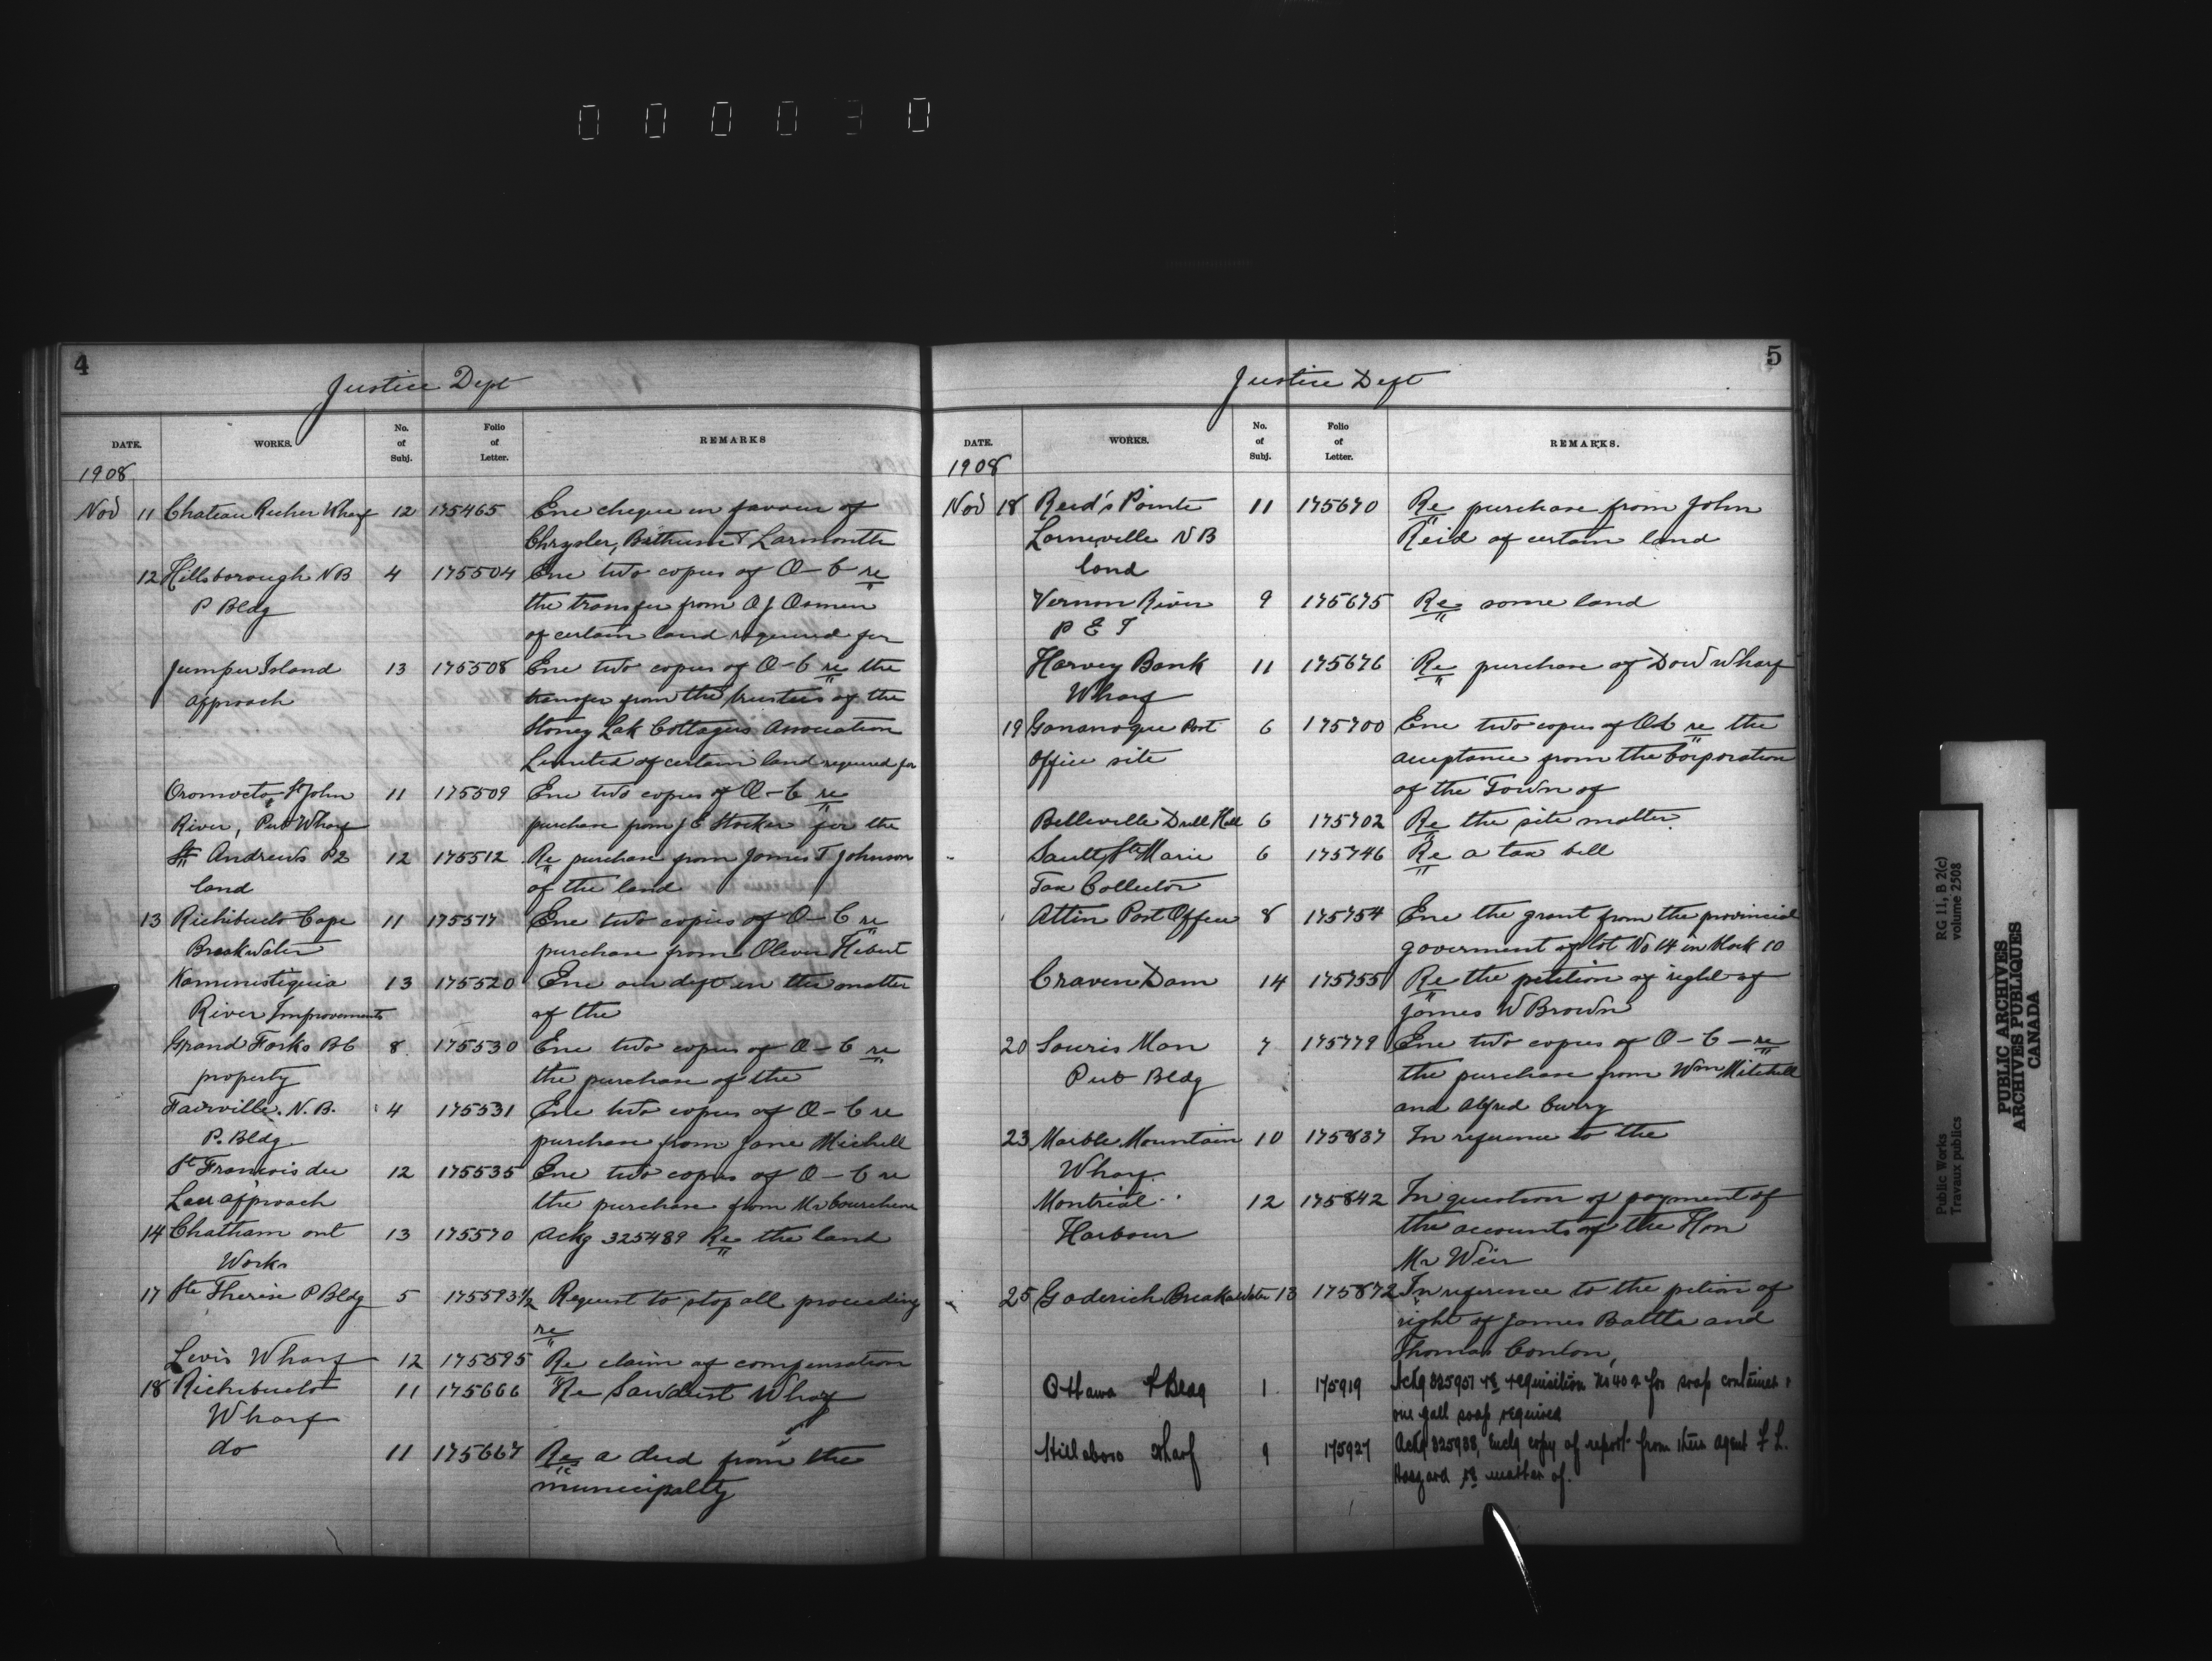 000030
4
Justice Dept
DATE. WORKS. No. of Subj. Folio of Letter. REMARKS
1908
Nov 11 Chateau Richer Wharf 12 175465 Enc cheque in favour of
Chrysler, Bethune & Larmonth
12 Hillsborough NB 4 175504 Enc two copies of O-C re
P Bldg the transfer from A J Osmen
of certain land required for
Jumper Island 13 175508 Enc two copies of O-C re the
approach transfer from the trustees of the
Stoney Lak Cottagers Association
Limited of certain land required for
Oromocto, St John 11 175509 Enc two copies of O-C re
River, Pub Wharf purchase from J E Stocker for the
St Andrews PQ 12 175512 Re purchase from James T Johnson
land of the land
13 Richibucto Cape 11 175517 Enc two copies of O-C re
Breakwater purchase from Oliver Hebert
Kaministiquia 13 175520 Enc our dept in the matter
River Improvements of the
Grand Forks BC 8 175530 Enc two copies of O-C re
property the purchase of the
Fairville. N.B. 4 175531 Enc two copies of O-C re
P. Bldg purchase from Jane Michell
St Francois du 12 175535 Enc two copies of O-C re
Lac approach the purchase from Mr Courchene
14 Chatham ont 13 175570 Ackg 325489 Re the land
Works
17 Ste Therese P Bldg 5 175593½ Request to stop all proceeding
re
Levis Wharf 12 175595 Re claim of compensation
18 Richibucto 11 175666 Re Sawdust Wharf
Wharf
do 11 175667 Re a deed from the
municipalty
5
Justice Dept
DATE. WORKS. No. of Subj. Folio of Letter. REMARKS.
1908
Nov 18 Reed's Pointe 11 175670 Re purchase from John
Lorneville NB Reid of certain land
land
Vernon River 9 175675 Re some land
P E I
Harvey Bank 11 175676 Re purchase of Dow Wharf
Wharf
19 Gananoque Post 6 175700 Enc two copies of OC re the
Office site acceptance from the Corporation
of the Town of
Belleville Drill Hall 6 175702 Re the site matter.
Sault Ste Marie 6 175746 Re a tax bill
Tax Collector
Attin Post Office 8 175754 Enc the grant from the provincial
goverment of lot No 14 in block 10
Craven Dam 14 175755 Re the petition of right of
James W Brown
20 Souris Man 7 175779 Enc two copies of O-C - re
Pub Bldg the purchase from Wm Mitchell
and Alfred Curry
23 Marble Mountain 10 175837 In reference to the
Wharf.
Montreal 12 175842 In question of payment of
Harbour the accounts of the Hon
Mr Weir
25 Goderich Breakwater 13 175872 In reference to the petion of
right of James Battle and
Thomas Conlon,
Ottawa P Bldg 1 175919 Ackg 325951 re requisition No 402 for soap container &
one gall soap required
Hillsboro Wharf 9 175927 Ackg 325938, Enclg copy of report from their agent F L.
Haszard re matter of.
Public Works
Travaux publics
RG 11, B 2(c)
volume 2508
PUBLIC ARCHIVES
ARCHIVES PUBLIQUES
CANADA